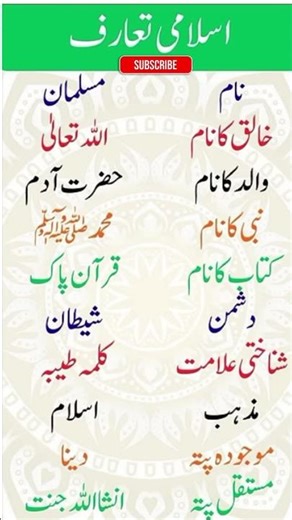 اسلامی تعارف
SUBSCRIBE
نام مسلمان
خالق کا نام اللہ تعالیٰ
والد کا نام حضرت آدم
نبی کا نام محمد ﷺ
کتاب کا نام قرآن پاک
دشمن شیطان
شناختی علامت کلمہ طیبہ
مذہب اسلام
موجودہ پتہ دینا
مستقل پتہ انشااللہ جنت